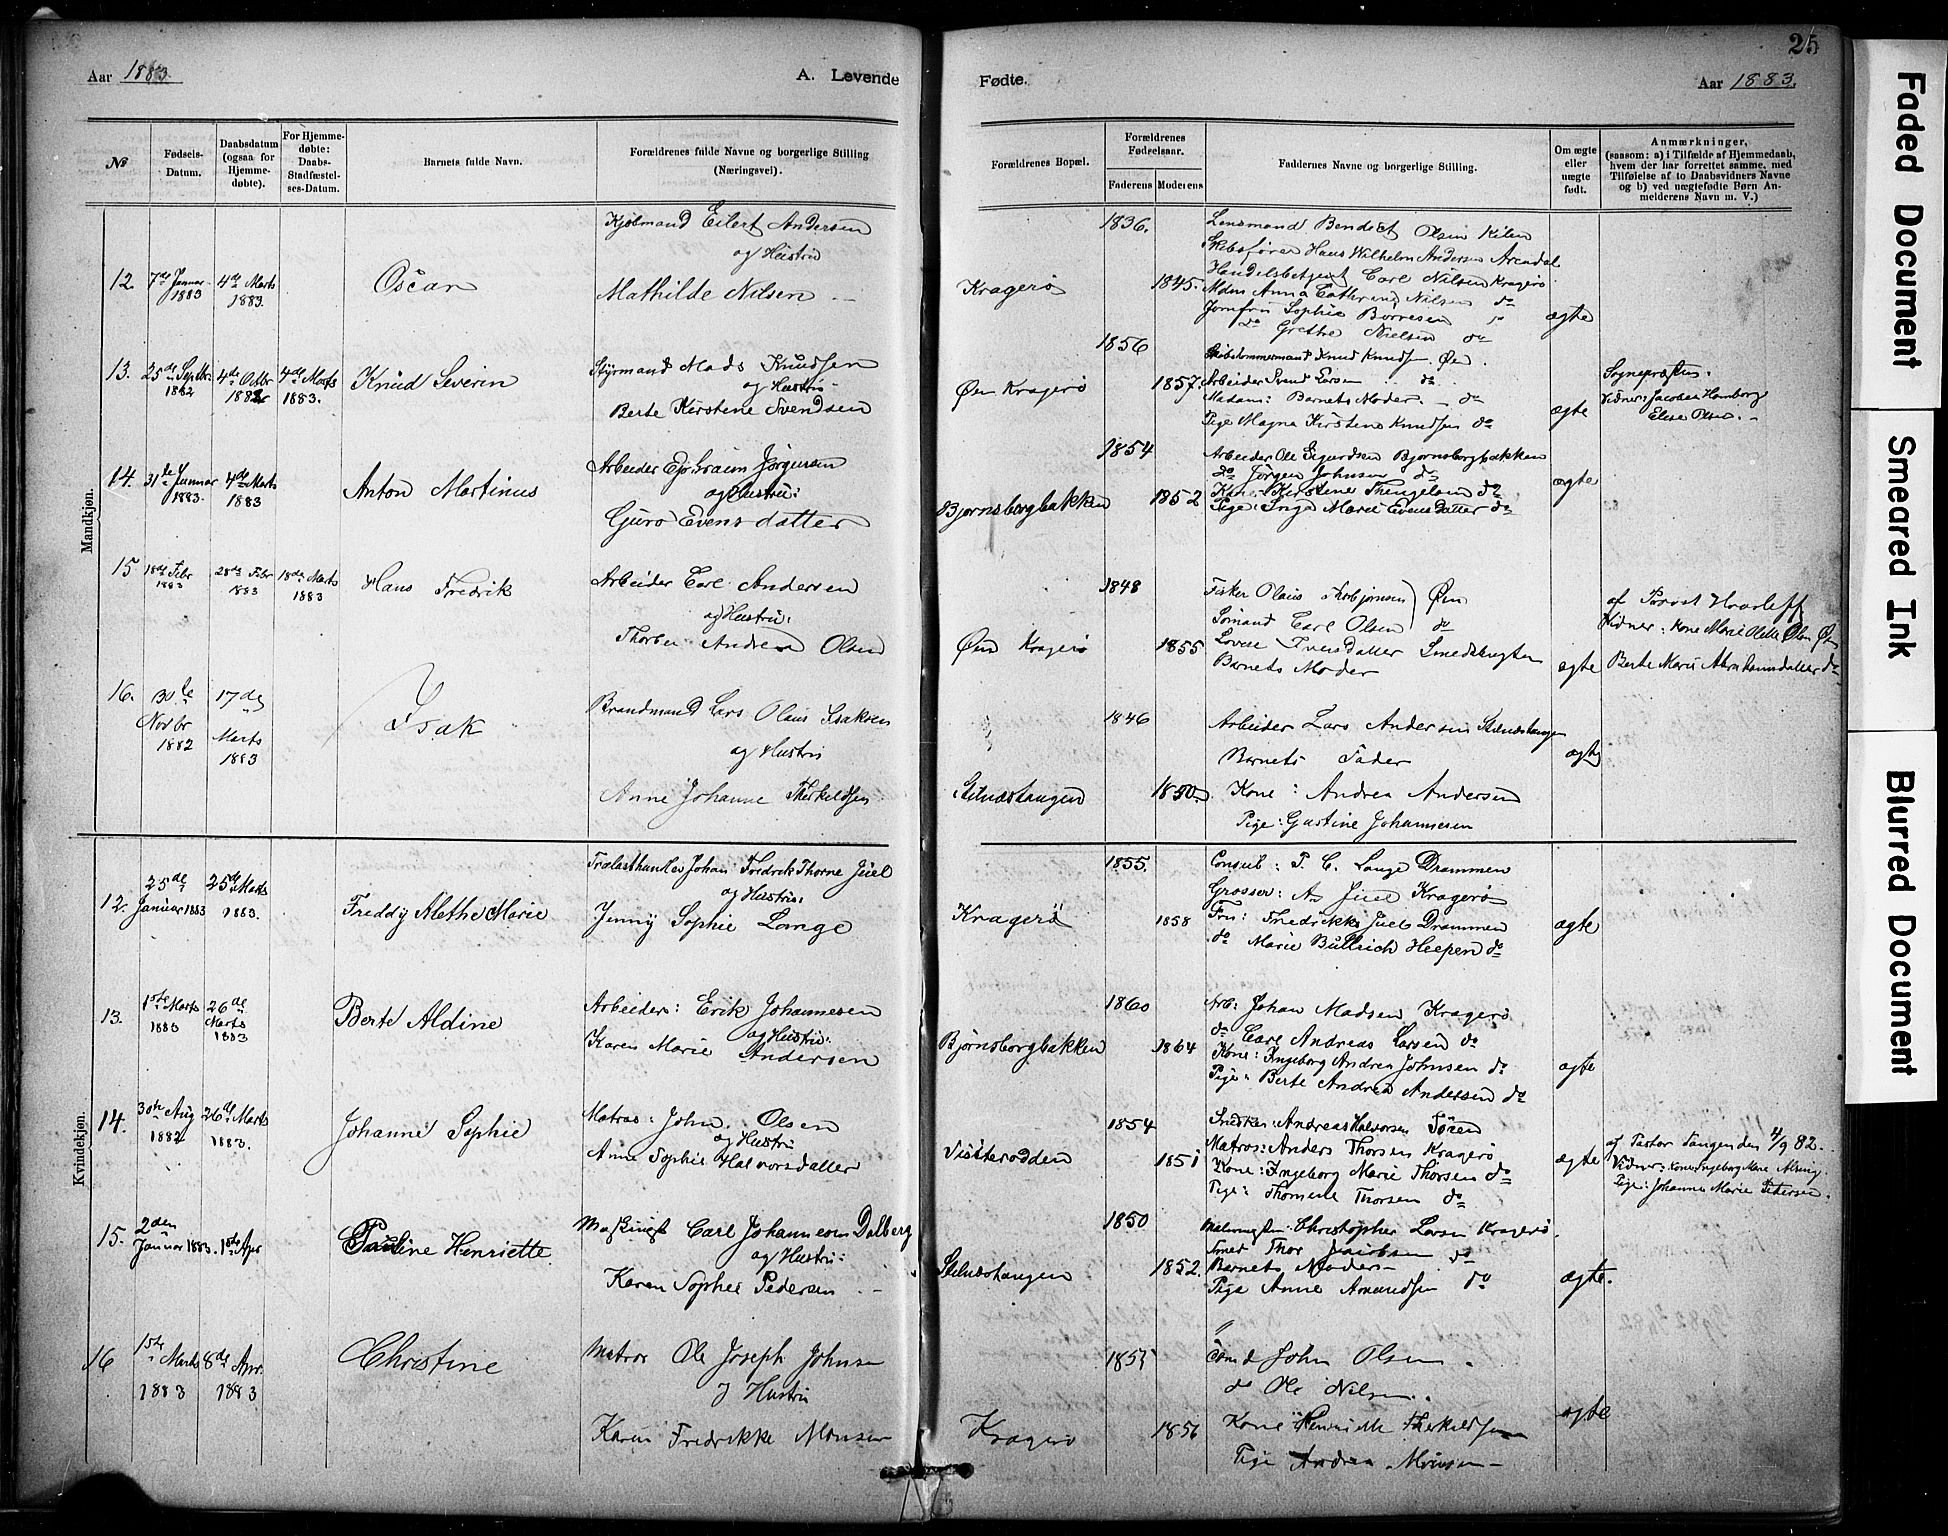 Aar 1883.
A. Levende
Fødte.
Aar 1883.
25
№
Fødsels-Datum.
Daabsdatum (ogsaa for Hjemme-døbte).
For Hjemme-døbte: Daabs-Stadfæstel-ses-Datum.
Barnets fulde Navn.
Forældrenes fulde Navne og borgerlige Stilling (Næringsvei).
Forældrenes Bopæl.
Forældrenes Fødselsaar.
Faderens Moderens
Faddernes Navne og borgerlige Stilling.
Om ægte eller uægte født.
Anmærkninger,
(saasom: a) i Tilfælde af Hjemmedaab, hvem der har forrettet samme, med Tilføielse af to Daabsvidners Navne og b) ved uægtefødte Børn An-melderens Navn m. V.)
Mandkjøn.
12. 7de Januar 1883 4de Marts 1883.
Oscar
Eilert Andersen
og Hustru
Mathilde Nilsen
Kragerø
1836.
1845.
Lensmand Bendict Olsen Kilen
Skibsfører Hans Wilhelm Andersen Arendal
Carl Nilsen Kragerø
Anna Cathrine Nilsen do
Jomfru Sophie Borresen do
do Grethe Nielsen do
ægte
13. 25de Septbr 1882 4de Octbr 1882 4de Marts 1883.
Knud Severin
Styrmand Mads Knudsen
og Hustru
Berte Kirstene Svendsen
Øen Kragerø
1856
1857.
Knud Knudsen Øen
Arbeider Svend Larsen do
Madam: Barnets Moder. do
Pige Magna Kirstene Knudsen do
ægte
Sognepræsten.
Vidner: Jacobea Homborg
Elise Olsen.
14. 31te Januar 1883. 4de Marts 1883
Anton Martinus
Arbeider Ephraim Jørgensen
og Hustru:
Guro Evensdatter
Bjørnsborgbakken
1854
1852
Arbeider Ole Sigurdsen Bjørnsborgbakken
do Jørgen Johnsen do
Kone: Kirstene do
Pige: Inge Marie Evensdatter do
ægte
15 18de Febr 1883 28de Febr 1883 18de Marts 1883
Hans Fredrik
Arbeider Carl Andersen
og Hustru:
Andrea Olsen
Øen Kragerø
1848
1855
Fisker Olaus Thorbjørnsen Øen
Sømand Carl Olsen do
Iversdatter
Barnets Moder
ægte
af Provst Haarleff
Vidner: Kone Marie Olette Olsen Øen
Berte Marie Abrahamsdatter do
16. 30te Novbr 1882 17de Marts 1883
Isak
Brandmand Lars Olaus Isaksen
og Hustru
Anne Johanne Therkeldsen
Stilnæstangen
1846
1850.
Arbeider Lars Andersen Stilnæstangen
Barnets Fader
Kone: Andrea Andersen
Pige: Gustine Johannesen
ægte
Kvindekjøn.
12. 25de Januar 1883 25de Marts 1883.
Freddy Alethe Marie
Trælasthandler Johan Fredrik Thorne Juel
og Hustru:
Jenny Sophie Lange
Kragerø
1855.
1858
Consul: T. C. Lange Drammen
Grosser: As Juel Kragerø
Fru: Fredrikke Juel Drammen
do Marie Bullrich Heepen do
ægte
13. 1ste Marts 1883 26de Marts 1883
Berte Aldine
Arbeider: Erik Johannesen
og Hustru:
Karen Marie Andersen
Bjørnsborgbakken
1860
1864
Arb: Johan Madsen Kragerø
do Carl Andreas Larsen do
Kone: Ingeborg Andrea Johnsen do
Pige: Berte Andrea Andersen do
ægte
14. 30te Aug 1882 26de Marts 1883.
Johanne Sophie
Matros: John Olsen
og Hustru
Anne Sophie Halvorsdatter
1854
1851
Snedker: Andreas Halvorsen
Matros: Anders Thorsen Kragerø
Kone: Ingeborg Marie Thorsen do
Pige: Thomene Thorsen do
ægte
af Pastor Tangen den 4/9 82.
Vidner: Kone: Ingeborg Marie
Pige: Johanne Marie Petersen.
15. 2den Januar 1883. 1ste Apr
Pauline Henriette
Maskinist Carl Johannesen Dalberg
og Hustru:
Karen Sophie Pedersen
Stilnæstangen
1850
1852.
Christopher Larsen Kragerø.
Smed Thor Jacobsen do
Barnets Moder
Pige Anne Amundsen do
ægte.
16 1ste Marts 1883 8de Apr. 1883
Christine
Matros Ole Joseph Johnsen
og Hustru
Karen Fredrikke Monsen
Kragerø
1856
John Olsen
do Ole Nilsen.
Kone Henriette Therkeldsen
Pige Andrea Monsen
ægte
Faded Document
Smeared Ink
Blurred Document